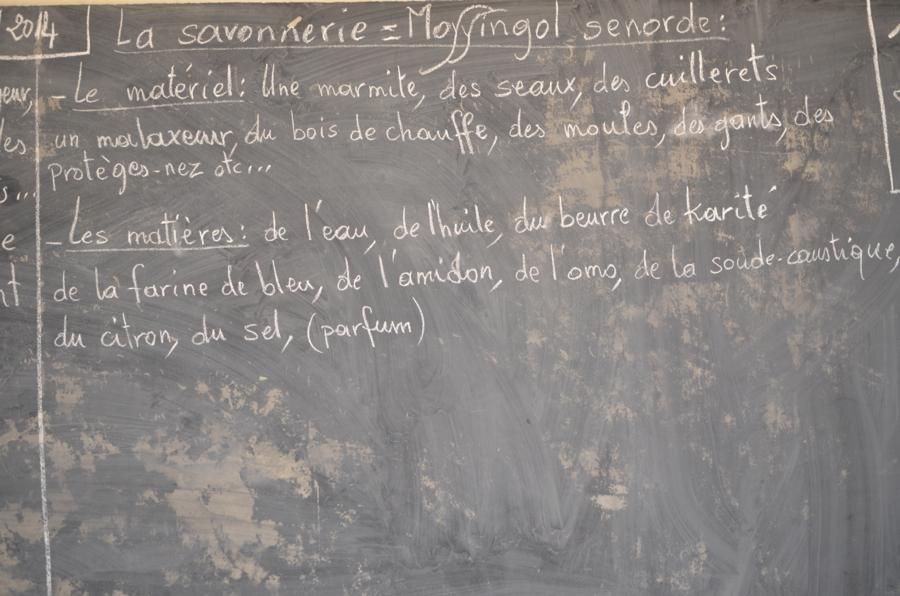 2014
La savonnerie = Mossingol senorde:
- Le matériel: Une marmite, des seaux, des cuillerets
un malaxeur, du bois de chauffe, des moules, des gants, des
Protèges-nez etc...
- Les matières: de l'eau, de l'huile, du beurre de karité
de la farine de bleu, de l'amidon, de l'omo, de la soude-caustique,
du citron, du sel, (parfum)